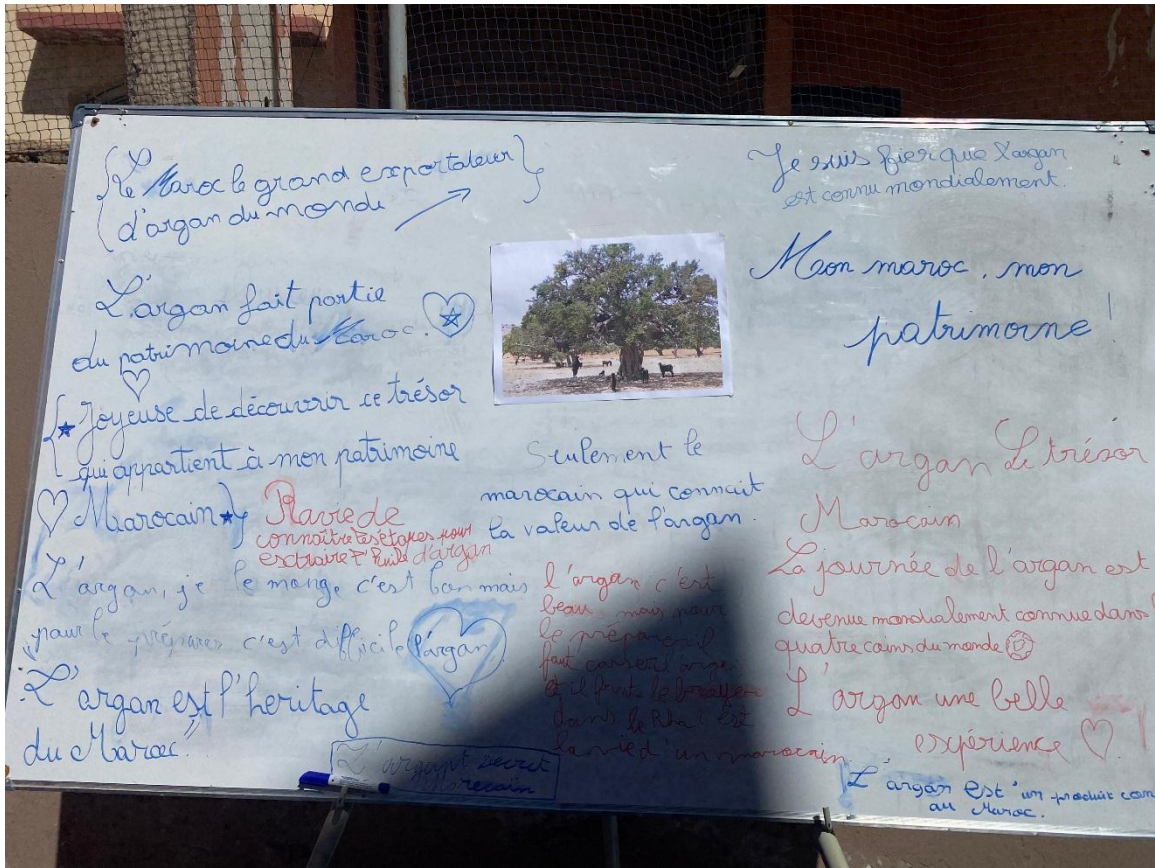 Le Maroc le grand exportateur
d'argan du monde
L'argan fait partie
du patrimoine du Maroc.
Joyeuse de découvrir ce trésor
qui appartient à mon patrimoine
Marocain
Ravie de
connaître les étapes pour
extraire l'huile d'argan
L'argan, je le mange c'est bon mais
pour le préparer c'est difficile l'argan
L'argan est l'heritage
du Maroc"
L'argan secret
marocain
Seulement le
marocain qui connait
la valeur de l'argan.
l'argan c'est
beau mais pour
le préparer il
faut casser l'argan
et il faut le
dans le Rha! est
la vie d'un marocain
Je suis fier que l'argan
est connu mondialement.
Mon maroc, mon
patrimoine!
L'argan Le trésor
Marocain
La journée de l'argan est
devenue mondialement connue dans
quatre coins du monde
L'argan une belle
expérience
L'argan est un produit
au Maroc.